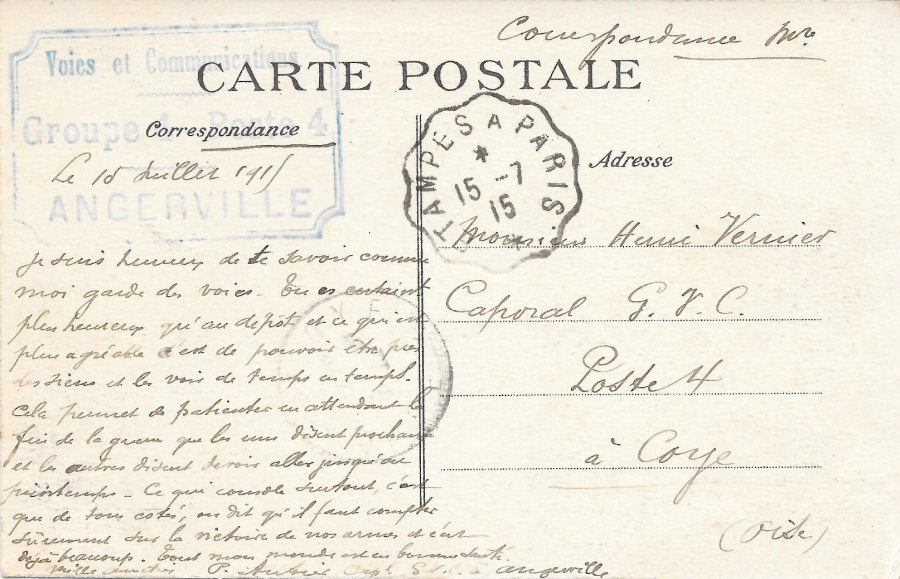 Correspondance Mre
Voies et Communications
CARTE POSTALE
Groupe 4 - Poste 4
Correspondance
ANGERVILLE
Le 15 Juillet 1915
ETAMPES A PARIS
15 -7
15
Adresse
Monsieur Henri Vernier
Caporal G. V. C.
Poste 4
à Coye
(Oise)
Je suis heureux de te savoir comme
moi garde des voies - Tu es certaint
plus heureux qu'au dépôt et ce qui est
plus agréable c'est de pouvoir être près
des siens et les voir de temps en temps.
Cela permet de patienter en attendant la
fin de la guerre que les uns disent prochaine
et les autres disent devoir aller jusqu'au
printemps - Ce qui console surtout, c'est
que de tous cotés, on dit qu'il faut compter
sûrement sur la victoire de nos armes et c'est
déjà beaucoup. Tout mon monde est en bonne santé.
Mille amitiés P. G.V.C. à Angerville